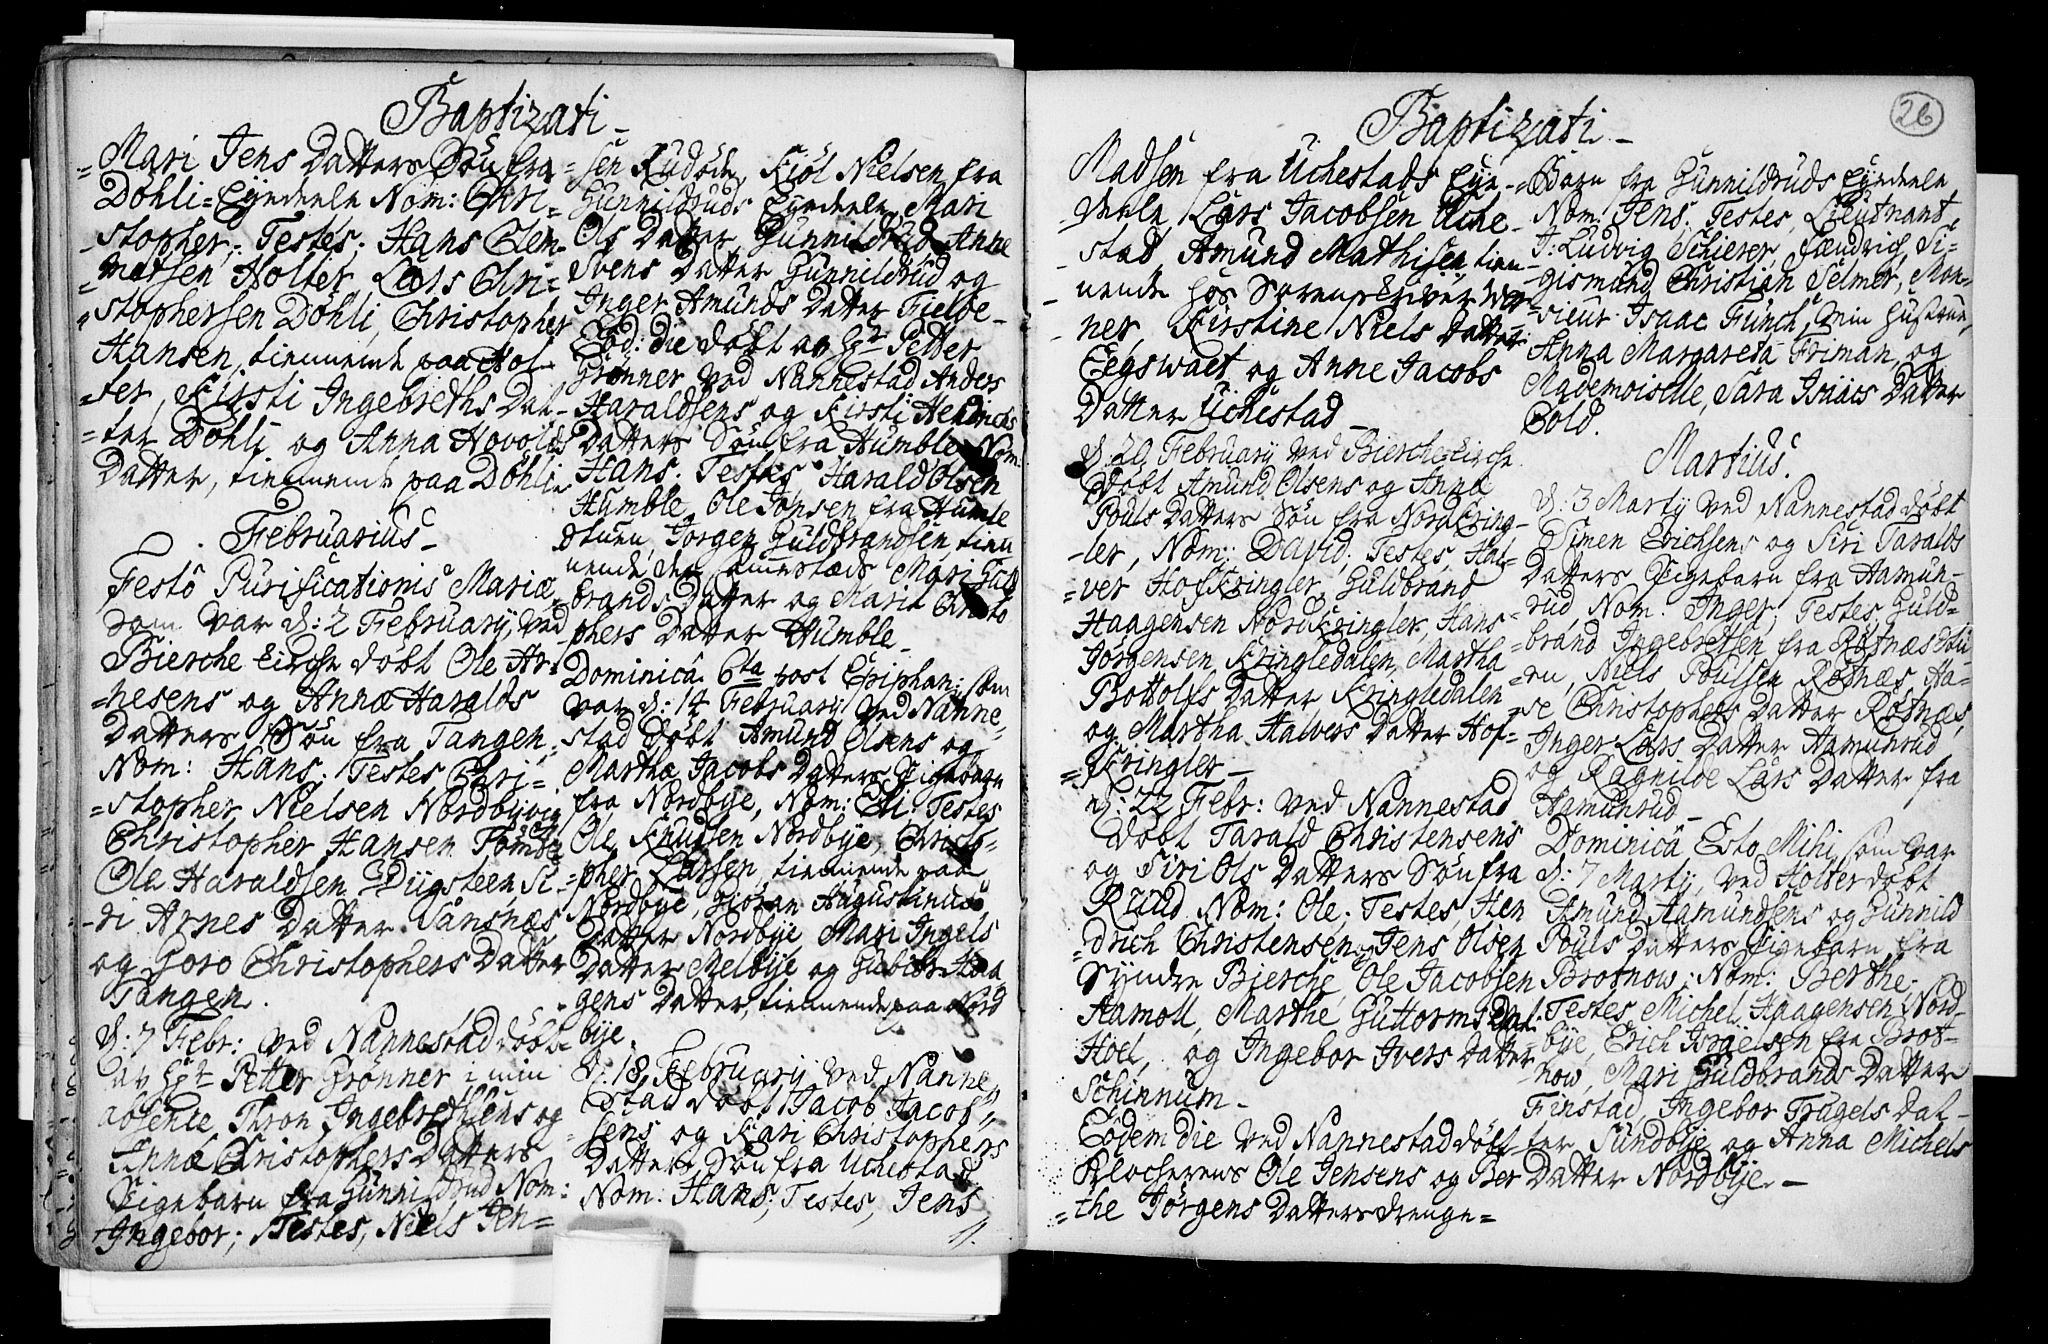 Baptizati
Mari Jens Datters Søn fra
Döhli-Eyedeele Nom: Chri-
stopher; Testes, Hans Clem-
metsen Holter, Lars Chri-
stophersen Döhli, Christopher
Hansen, tiennende paa Hol-
ter, Kirsti Ingebreths Dat-
ter Döhli og Anna Hovolds
Datter, tiennende paa Döhli.
Februarius
Festô Purificationis Mariæ,
som var d: 2 February, ved
Bierche Kirche døbt Ole Ar-
nesens og Anna Haralds
Datters Søn fra Tangen,
Nom: Hans; Testes Chri-
stopher Nielsen Nordbyvig
Christopher Hansen Tømte
Ole Haraldsen Diigsteen, Si-
ri Arnes Datter Sansnæs
og Goro Christophers Datter
Tangen.
d: 7 Febr: ved Nannestad døbt
av Hr Petter Grønner i min
absence, Thron Ingebrethsens og
Anna Christophers Datters
Pigebarn fra Gunnildrud Nom:
Ingebor; Testes, Niels Jen-
sen Rudsøde, Kiøl Nielsen fra
Gunnildruds Eyedeele, Mari
Ols Datter Gunnildrud Anne
Svens Datter Gunnildrud og
Inger Amunds Datter Fielde-
Eod: die døbt av Hr Petter
Grønner ved Nannestad Anders
Haraldsens og Kirsti Hendrichs
Datters Søn fra Humble Nom:
Hans; Testes Harald Olsen
Humble, Ole Jonsen fra Humle
Stuen, Jorgen Guldbrandsen tien
nende der sammestæds Mari Guld
brands Datter og Maria Christo
phers Datter Humble-
Dominica 6ta post Epiphan: som
var d: 14 February ved Nanne-
stad døbt Amund Olsens og
Martha Jacobs Datters Pigebarn
fra Nordbye, Nom: Eli, Testes
Ole Knudsen Nordbye, Christo-
pher Larsen, tiennende paa
Nordbye, Giøran Augustinus
Datter Nordbye, Mari Ingels
Datter Melbye og Gubiør Haa
gens Datter, tiennende paa Nord
bye.
D: 18 February ved Nanne
stad døbt Jacob Jacob-
sens og Kari Christophers
Datters Søn fra Uchestad
Nom: Hans; Testes, Jens
Baptizati
26
Madsen fra Uchestads Eye-
deele, Lars Jacobsen Uche-
stad, Amund Mathisen tien-
nende hos Sorenskriver Wer
ner, Kirstine Niels Datter
Eegswaet og Anne Jacobs
Datter Uchestad
d: 20 February ved Bierche Kirche
døbt Amund Olsens og Anna
Pouls Datters Søn fra Nordkring-
ler, Nom: David; Testes, Hal-
ver Hofkringler, Guldbrand
Haagensen Nordkringler, Hans
Jørgensen Kringledalen, Martha
Bottolfs Datter Kringledalen
og Martha Halvers Datter Hof-
kringler
d: 22 Febr: ved Nannestad
døbt Tarald Christensens
og Siri Ols Datters Søn fra
Ruud Nom: Ole; Testes, Hen
drich Christensen, Jens Olsen
Syndre Bierche Ole Jacobsen
Hamoll, Marthe Guttorms Dat:
Hoel, og Ingebor Ivers Datter
Schinnum
Eodem die ved Nannestad døbt
Klocherens Ole Jensens og Ber
the Jørgens Datters drenge-
Barn fra Gunnildruds Eyedeele
Nom: Jens; Testes, Lieutnant
J: Ludvig Schierer, Fændrich Si-
gismund Christian Selmer, Mon-
sieur Isaac Funch, min Hustrue,
Anna Margareta Friman, og
Mademoiselle, Sara Isaacs Datter
Bold.
Martius.
d: 3 Marty ved Nannestad døbt
Simen Erichsens og Siri Taralds
Datters Pigebarn fra Aamun-
rud Nom: Inger; Testes, Guld-
brand Ingebretsen fra Røsnæs Stu-
en, Niels Poulsen Røsnæs Ha-
se Christophers Datter Røsnæs,
Inger Lars Datter Aamunrud
og Ragnilde Lars Datter fra
Aamunrud
Dominica Esto Mihi, som var
d: 7 Marty, ved Holter døbt
Amund Aamundsens og Gunnild
Pouls Datters Pigebarn fra
Brotnow; Nom: Berthe;
Testes, Michel Haagensen Nord-
bye, Erich Israelsen fra Brot-
now, Mari Guldbrands Datter
Finstad, Ingebor Trugels Dat-
ter Sundbye og Anna Michels
Datter Nordbye.